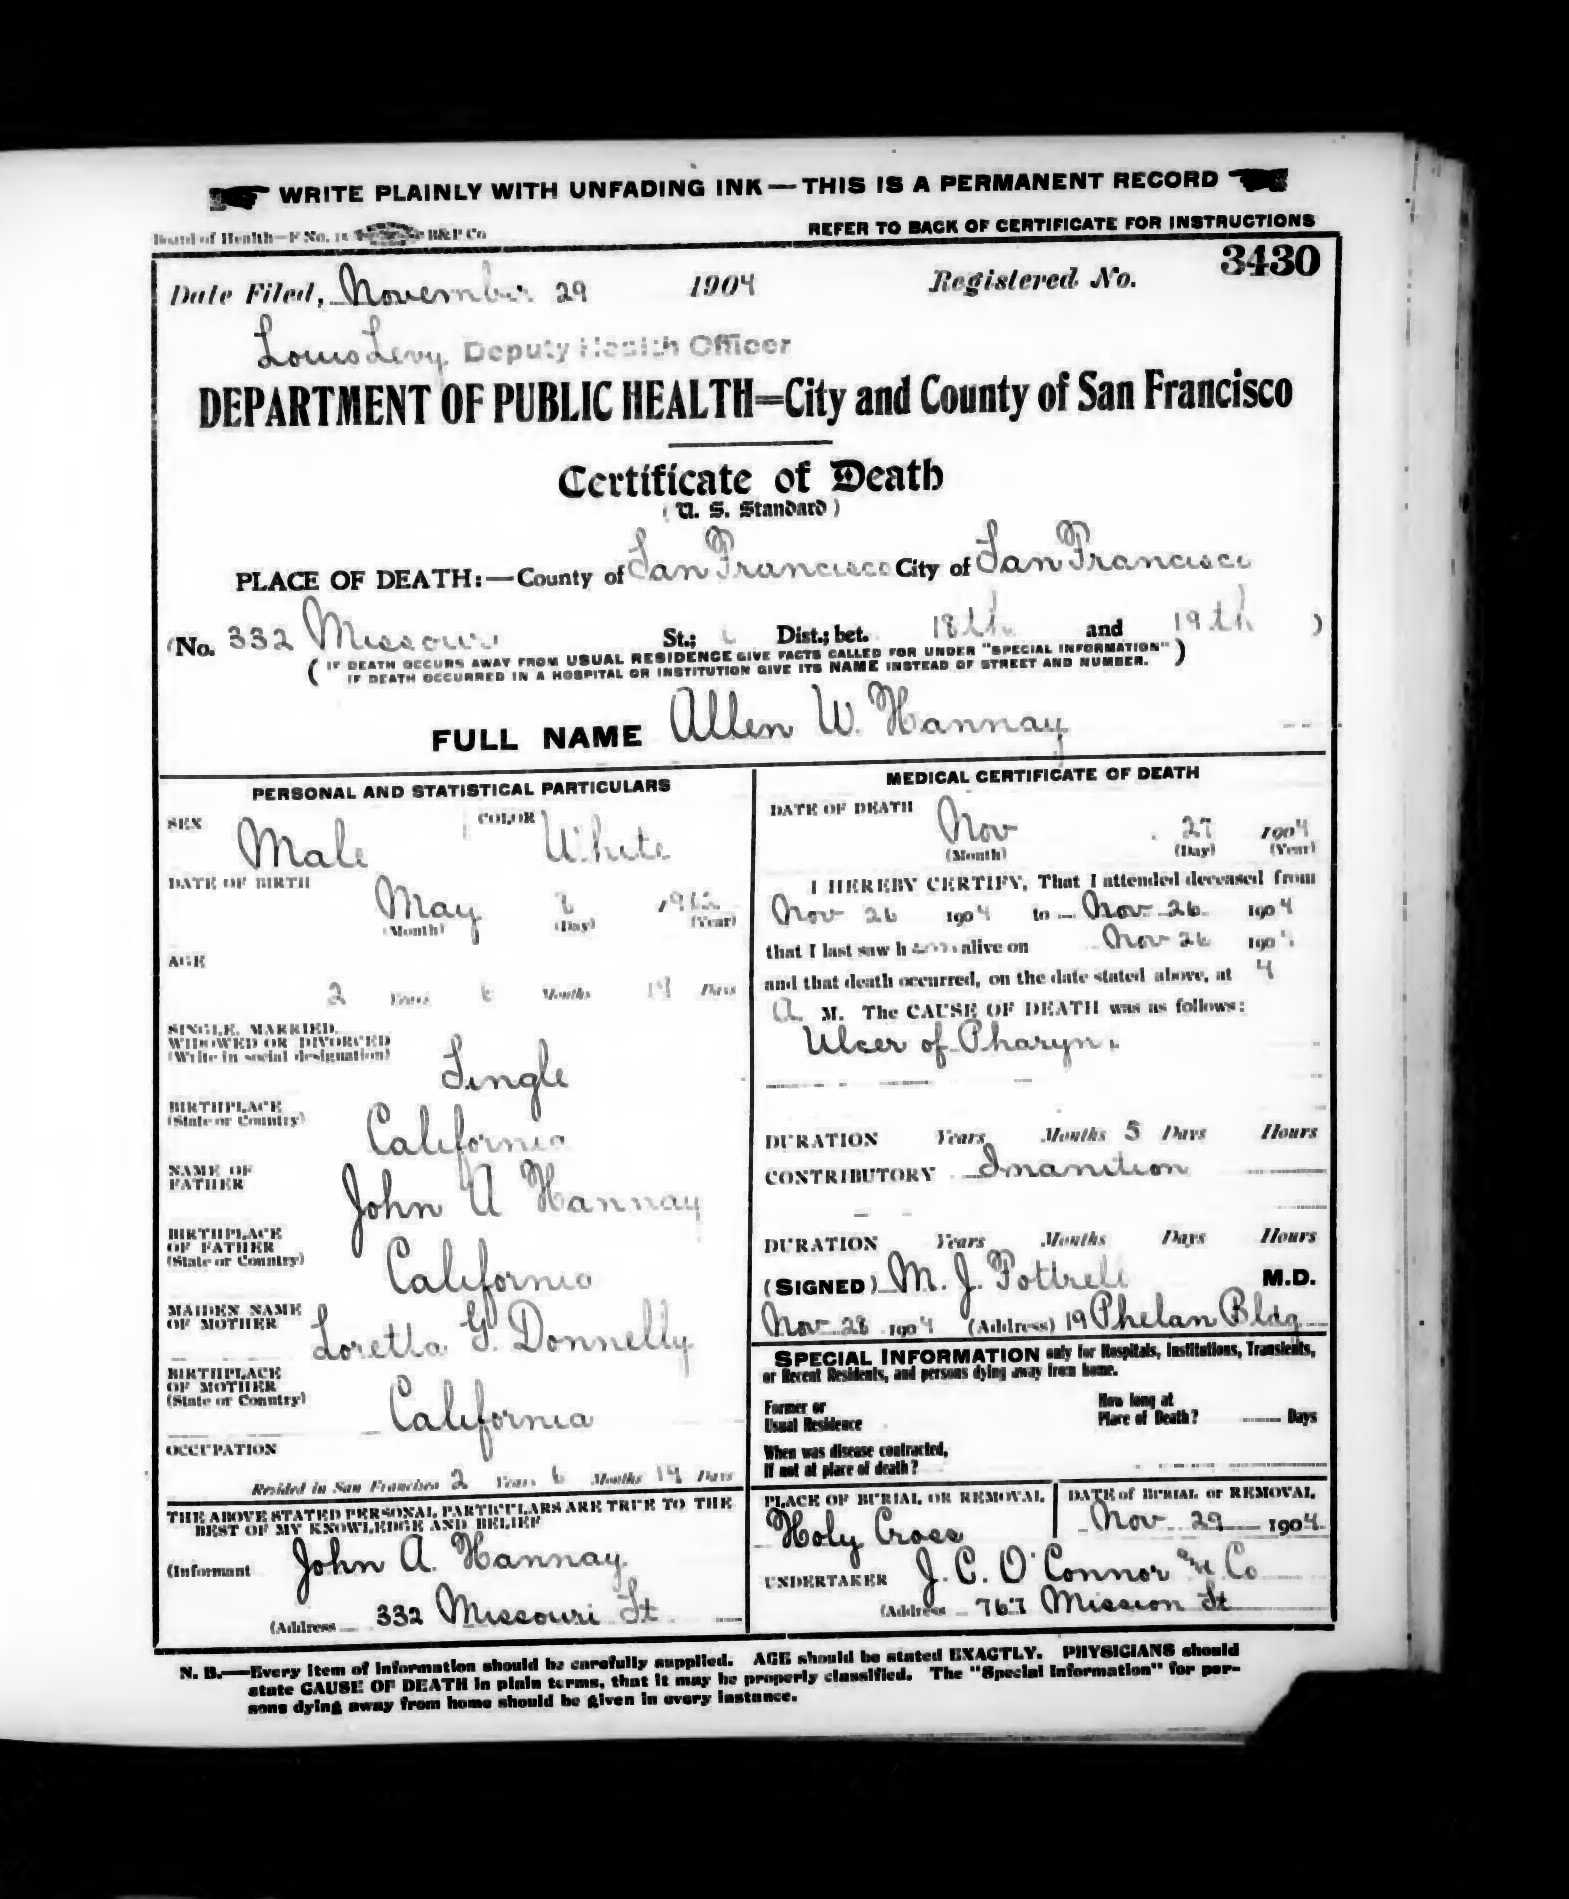 WRITE PLAINLY WITH UNFADING INK — THIS IS A PERMANENT RECORD
Board of Health—F No. B&P Co REFER TO BACK OF CERTIFICATE FOR INSTRUCTIONS
Date Filed, November 29 1904 Registered No. 3430
Louis Levy Deputy Health Officer
DEPARTMENT OF PUBLIC HEALTH=City and County of San Francisco
Certificate of Death
(U. S. Standard)
PLACE OF DEATH:—County of San Francisco City of San Francisco
(No. 332 Missouri St.; Dist.; bet. 18th and 19th )
( IF DEATH OCCURS AWAY FROM USUAL RESIDENCE GIVE FACTS CALLED FOR UNDER "SPECIAL INFORMATION" )
IF DEATH OCCURRED IN A HOSPITAL OR INSTITUTION GIVE ITS NAME INSTEAD OF STREET AND NUMBER.
FULL NAME Allen W. Hannay
PERSONAL AND STATISTICAL PARTICULARS
SEX Male COLOR White
DATE OF BIRTH
May 190
(Month) (Day) (Year)
AGE
2 Years 6 Months 19 Days
SINGLE, MARRIED,
WIDOWED OR DIVORCED
(Write in social designation)
Single
BIRTHPLACE
(State or Country)
California
NAME OF
FATHER
John A Hannay
BIRTHPLACE
OF FATHER
(State or Country)
California
MAIDEN NAME
OF MOTHER
Loretta G. Donnelly
BIRTHPLACE
OF MOTHER
(State or Country)
California
OCCUPATION
Resided in San Francisco 2 Years 6 Months 19 Days
THE ABOVE STATED PERSONAL PARTICULARS ARE TRUE TO THE
BEST OF MY KNOWLEDGE AND BELIEF
(Informant John A. Hannay
(Address 332 Missouri St
MEDICAL CERTIFICATE OF DEATH
DATE OF DEATH
Nov 27 1904
(Month) (Day) (Year)
I HEREBY CERTIFY, That I attended deceased from
Nov 26 1904 to Nov 26 1904
that I last saw h alive on Nov 26 1904
and that death occurred, on the date stated above, at 4
A. M. The CAUSE OF DEATH was as follows:
Ulcer of Pharynx
DURATION Years Months 5 Days Hours
CONTRIBUTORY Inanition
DURATION Years Months Days Hours
(SIGNED) M. J. Pottrell M.D.
Nov 28 1904 (Address) 19 Phelan Bldg
SPECIAL INFORMATION only for Hospitals, Institutions, Transients,
or Recent Residents, and persons dying away from home.
Former or
Usual Residence
How long at
Place of Death? Days
When was disease contracted,
If not at place of death?
PLACE OF BURIAL OR REMOVAL
Holy Cross
DATE of BURIAL or REMOVAL
Nov 29 1904
UNDERTAKER J. C. O'Connor and Co
(Address 767 Mission St
N. B.—Every item of information should be carefully supplied. AGE should be stated EXACTLY. PHYSICIANS should
state CAUSE OF DEATH in plain terms, that it may be properly classified. The "Special Information" for per-
sons dying away from home should be given in every instance.